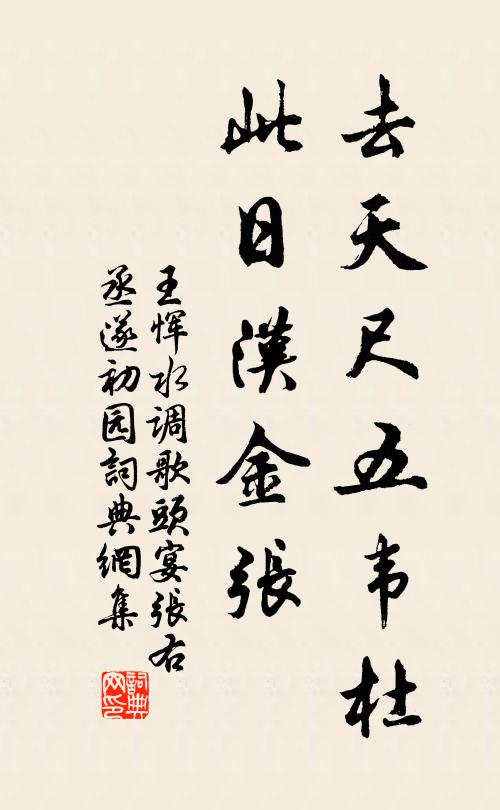 去天尺五韦杜
此日漢金張
王恽水调歌頭宴張右
丞遂初园詞典網集
詞典网印